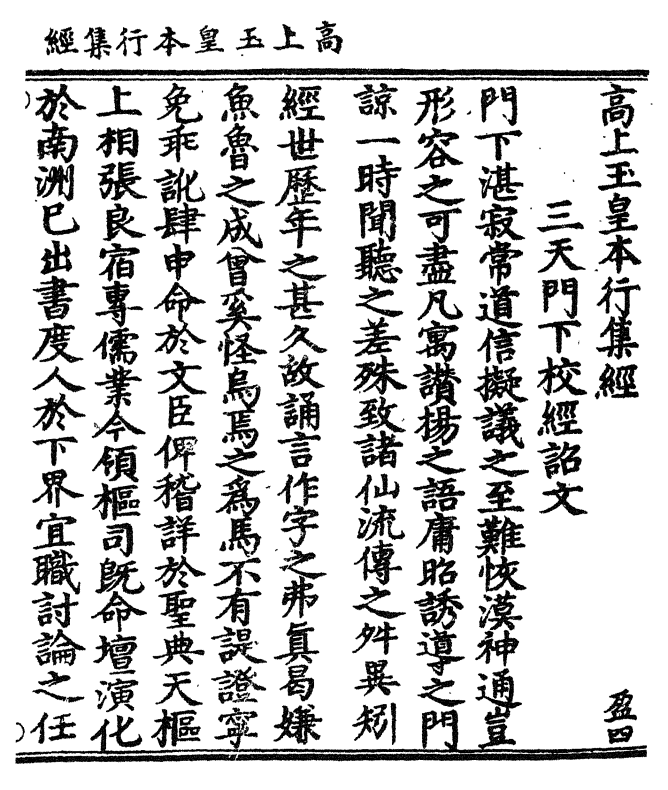 高上玉皇本行集經
高上玉皇本行集經 盈四
三天門下校經詔文
門下湛寂常道信擬議之至難恢漠神通豈
形容之可盡凡寓讚揚之語庸昭誘導之門
諒一時聞聽之差殊致諸仙流傳之舛異矧
經世歷年之甚久故誦言作字之弗真曷嫌
魚魯之成曾奚怪烏焉之為馬不有諟證寧
免乖訛肆申命於文臣俾稽詳於聖典天樞
上相張良宿專儒業今領樞司既命壇演化
於南洲已出書度人於下界宜職討論之任